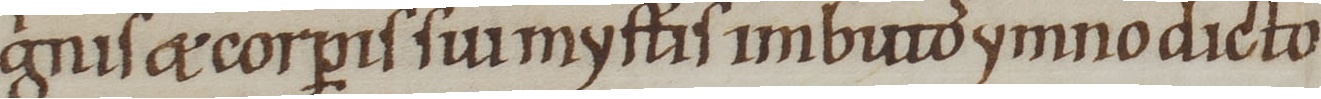 gnis & corꝑis sui mystis imbutoꝭ ymno dicto